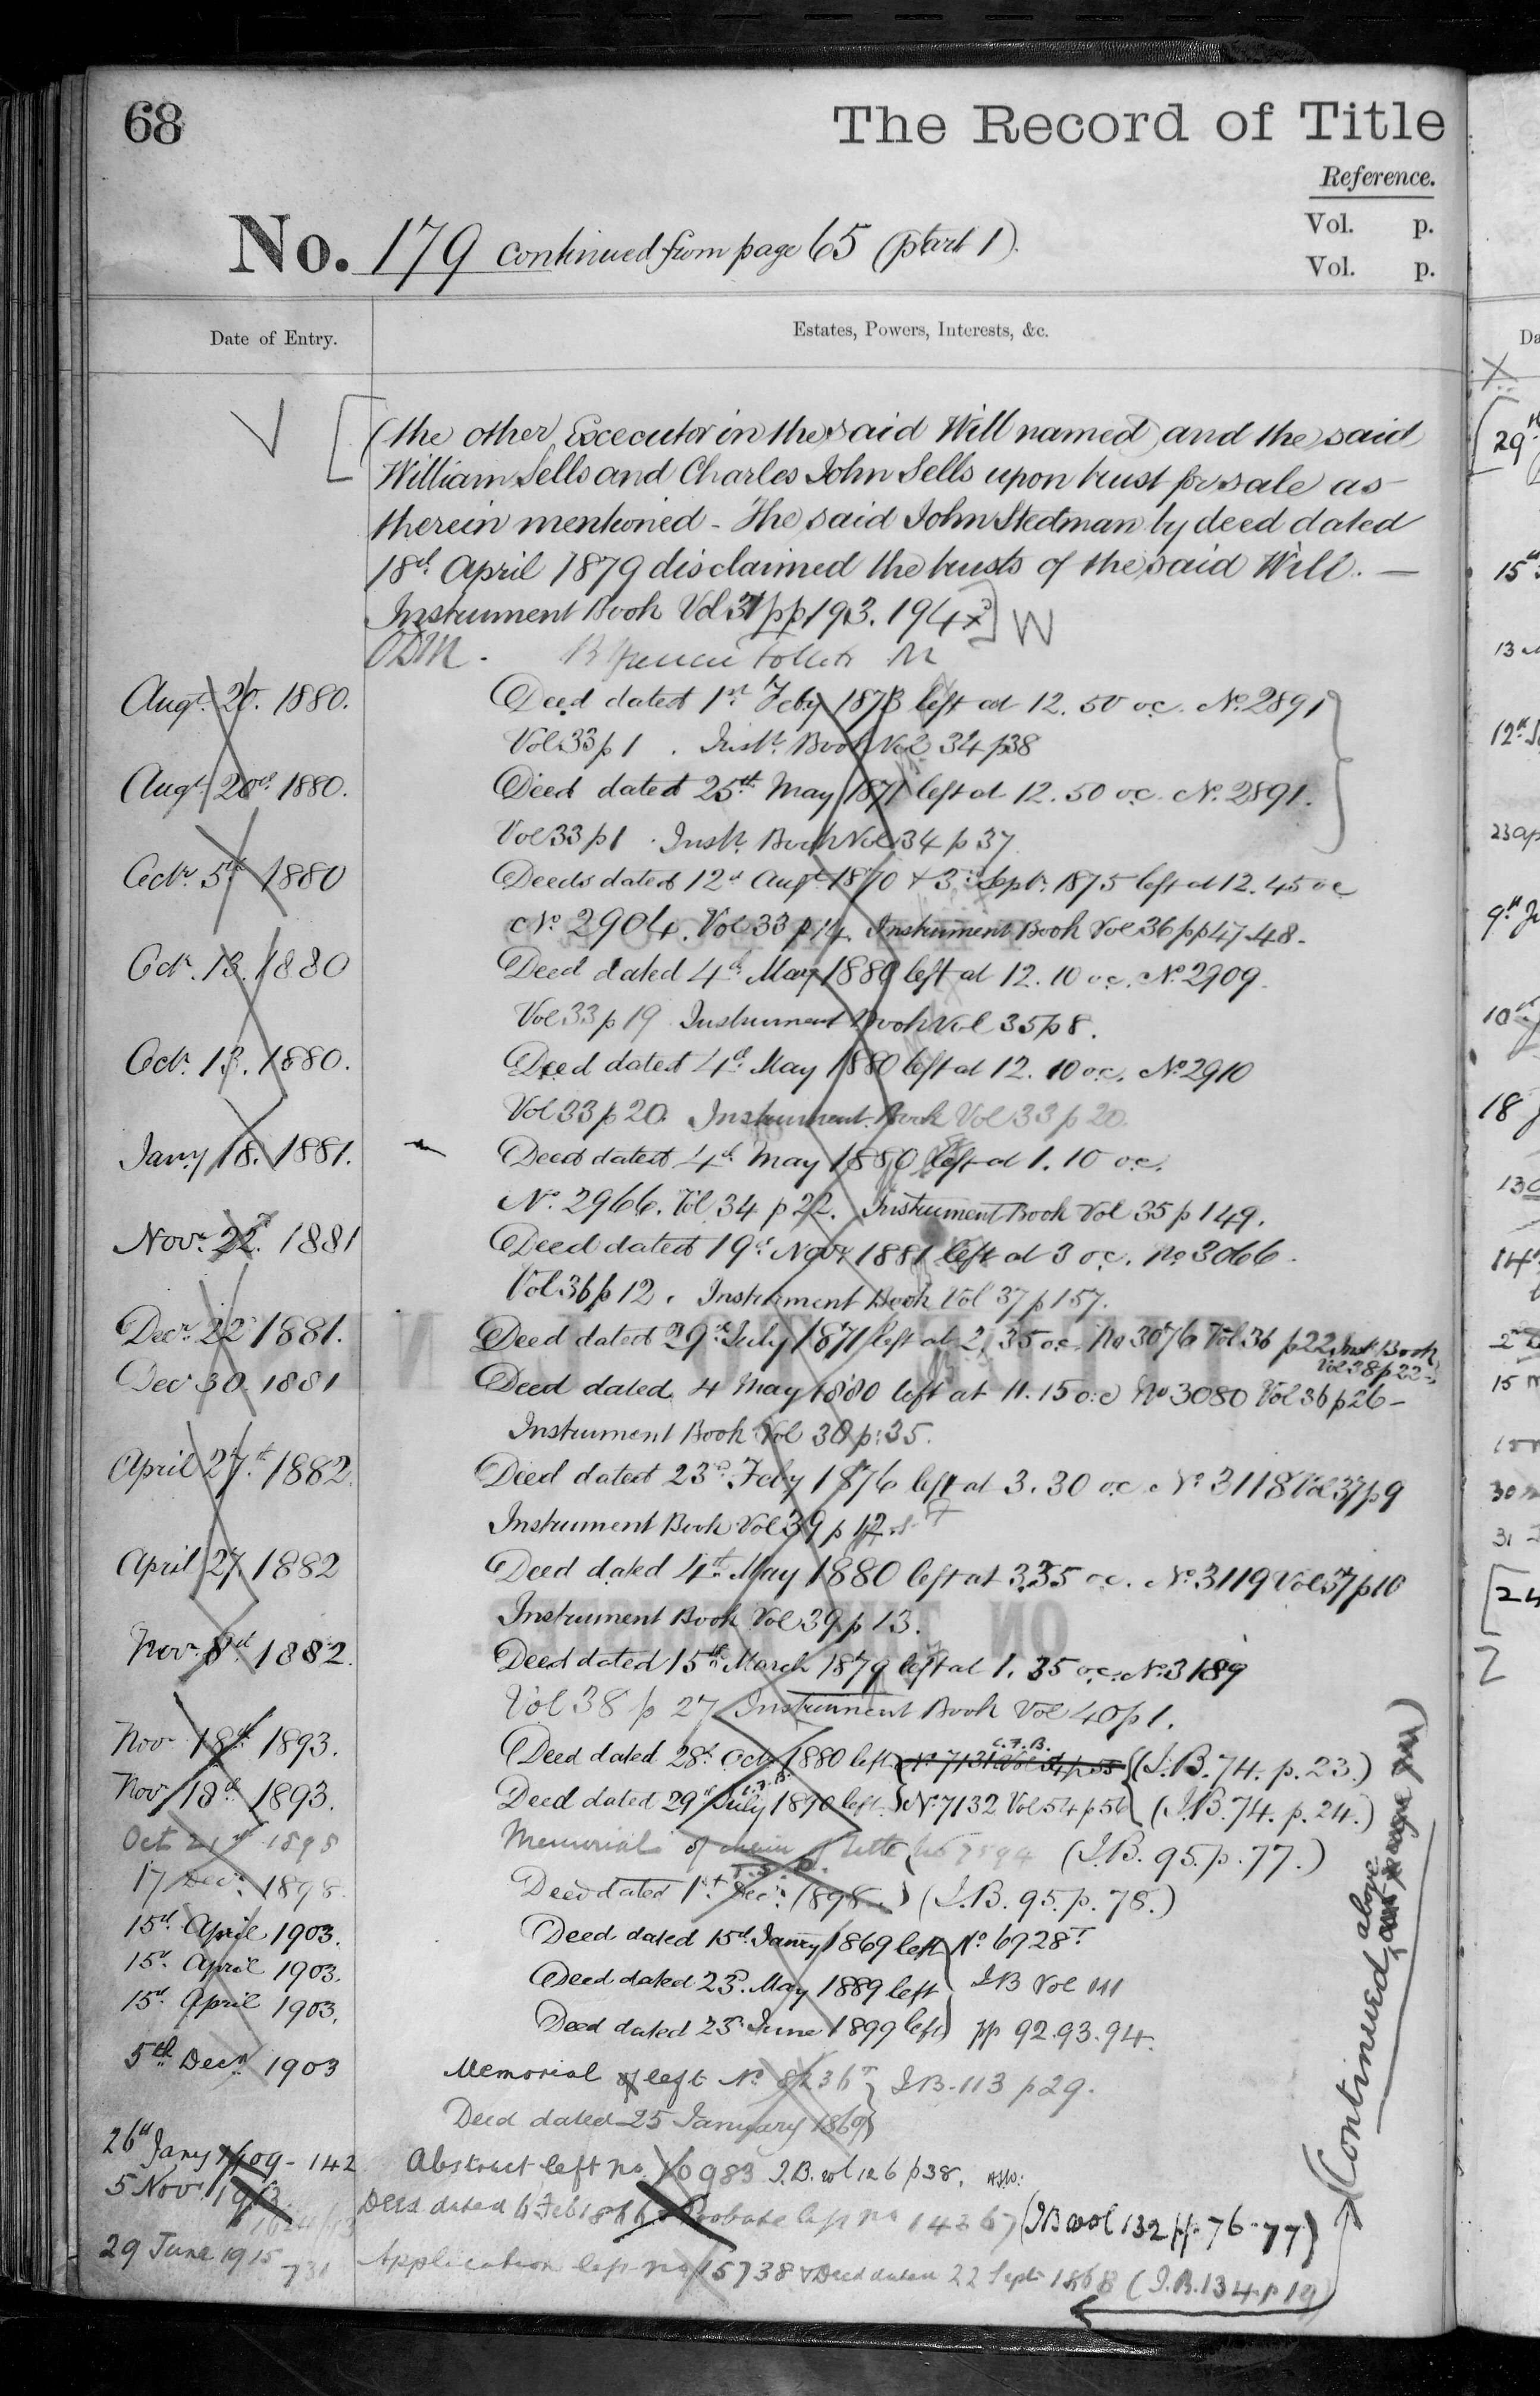 68
The Record of Title
Reference.
Vol. p.
Vol. p.
No. 179 continued from page 65 (part 1).
Date of Entry.
Estates, Powers, Interests, &c.
(the other Executor in the said Will named) and the said
William Sells and Charles John Sells upon trust for sale as
therein mentioned - The said John Stedman by deed dated
18th April 1879 disclaimed the trusts of the said Will. —
Instrument Book Vol 31 pp 193. 194
Augt. 20. 1880. Deed dated 1st Feby 1873 left at 12. 50 oc. No. 2891
Vol 33 p 1 . Instt. Book Vol 34 p 38
Augt. 20th 1880. Deed dated 25th May 1871 left at 12. 50 oc. No. 2891.
Vol 33 p 1 . Instt. Book Vol 34 p 37
Octr. 5th 1880 Deeds dated 12th Augt. 1870 & 3d Septr. 1875 left at 12. 45 oc
No. 2904. Vol 33 p 14. Instrument Book Vol 36 pp 47.48.
Octr. 13. 1880 Deed dated 4th May 1880 left at 12. 10 oc. No. 2909.
Vol 33 p 19 Instrument Book Vol 35 p 8.
Octr. 13. 1880. Deed dated 4th May 1880 left at 12. 10 oc. No. 2910
Vol 33 p 20. Instrument Book Vol 33 p 20.
Jany 18. 1881. Deed dated 4th May 1880 left at 1. 10 oc.
No. 2966. Vol 34 p 22. Instrument Book Vol 35 p 149.
Novr. 22d. 1881 Deed dated 19th Novr 1881 left at 3 oc. No. 3066.
Vol 36 p 12. Instrument Book Vol 37 p 157.
Decr. 22 1881. Deed dated 29th July 1871 left at 2. 35 oc. No 3076 Vol 36 p 22 Inst Book
Vol 38 p 22
Decr 30. 1881 Deed dated 4 May 1880 left at 11. 15 oc No 3080 Vol 36 p 26 -
Instrument Book Vol 38 p. 35.
April 27th. 1882. Deed dated 23d. Feby 1876 left at 3. 30 oc. No. 3118 Vol 37 p 9
Instrument Book Vol 39 p 12
April 27. 1882 Deed dated 4th May 1880 left at 3.35 oc. No. 3119 Vol 37 p 10
Instrument Book Vol 39 p 13.
Novr. 8th 1882. Deed dated 15th March 1879 left at 1. 35 oc. No. 3189
Vol 38 p 27 Instrument Book Vol 40 p 1.
Nov 18th 1893. Deed dated 28th Octr. 1880 left No 7131 Vol 54 p 55 (I.B. 74. p. 23.)
Nov 18th 1893. Deed dated 29th July 1890 left No. 7132 Vol 54 p 56 (I.B. 74. p. 24.)
Oct 1898 Memorial of chain of title (I.B. 95. p. 77.)
17 Decr. 1898. Deed dated 1st. Decr. 1898 (I.B. 95. p. 78.)
15th April 1903. Deed dated 15th Janry 1869 left No. 6928T
15th April 1903. Deed dated 23d. May 1889 left IB Vol 111
15th April 1903. Deed dated 23d June 1899 left pp 92.93.94.
5th Decr. 1903 Memorial of left No. 8236T I.B. 113 p 29.
Deed dated 25 January 1869
26th Jany 1909 - 142 Abstract left no. 10983 I.B. vol 126 p 38.
5 Novr 1913. Deed dated 6 Feb 1866 & Probate left no 14267 (IB vol 132 pp. 76-77)
29 June 1915 - 731 Application left no 15738 & Deed dated 22 Sept 1868 (I.B. 134 p 19)
(Continued above